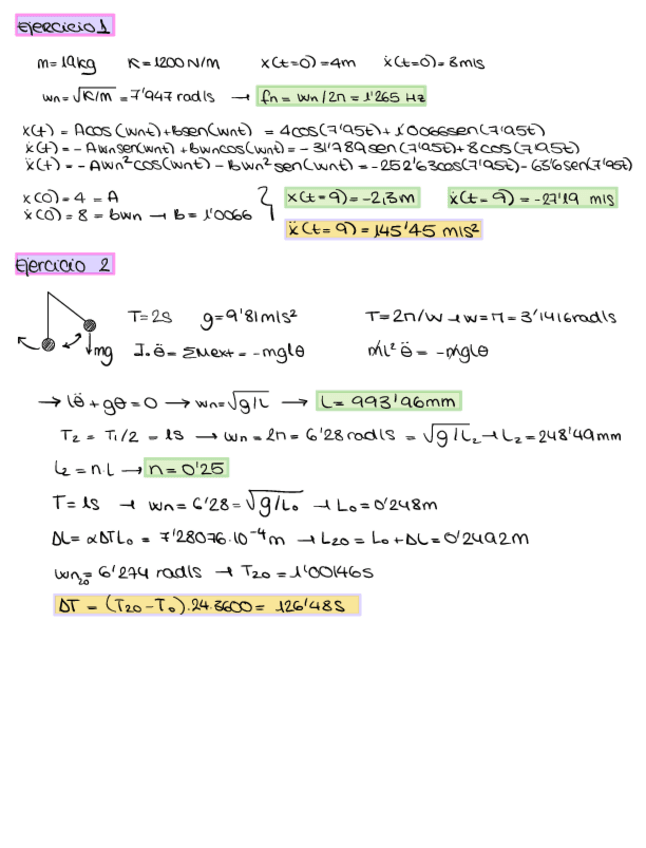 Ejercicio 1
m=19kg K=1200N/M x(t=0)=4m ẋ(t=0)=8m/s
wn=√K/m=7'947 rad/s → fn=wn/2π=1'265 Hz
x(t) = Acos(wnt)+Bsen(wnt) = 4cos(7'95t)+1'0066sen(7'95t)
ẋ(t)=-Awnsen(wnt)+Bwncos(wnt)=-31'789sen(7'95t)+8cos(7'95t)
ẍ(t)=-Awn²cos(wnt)-Bwn²sen(wnt)=-252'63cos(7'95t)-63'6sen(7'95t)
x(0)=4=A
ẋ(0)=8=bwn → B=1'0066
x(t=9)=-2,3m ẋ(t=9)=-27'19 m/s
ẍ(t=9)=145'45 m/s²
Ejercicio 2
T=2s g=9'81m/s² T=2π/w → w=π=3'1416rad/s
mg J·θ̈=ΣMext=-mglθ ml²θ̈=-mglθ
→ lθ̈+gθ=0 → wn=√g/L → L=993'96mm
T₂=T₁/2=1s → wn=2π=6'28rad/s=√g/L₂ → L₂=248'49mm
L₂=n·L → n=0'25
T=1s → wn=6'28=√g/L₀ → L₀=0'248m
ΔL=αΔTL₀=7'28076·10⁻⁴m → L₂₀=L₀+ΔL=0'2492m
wn₂₀=6'274 rad/s → T₂₀=1'00146s
ΔT=(T₂₀-T₀)·24·3600=126'48s